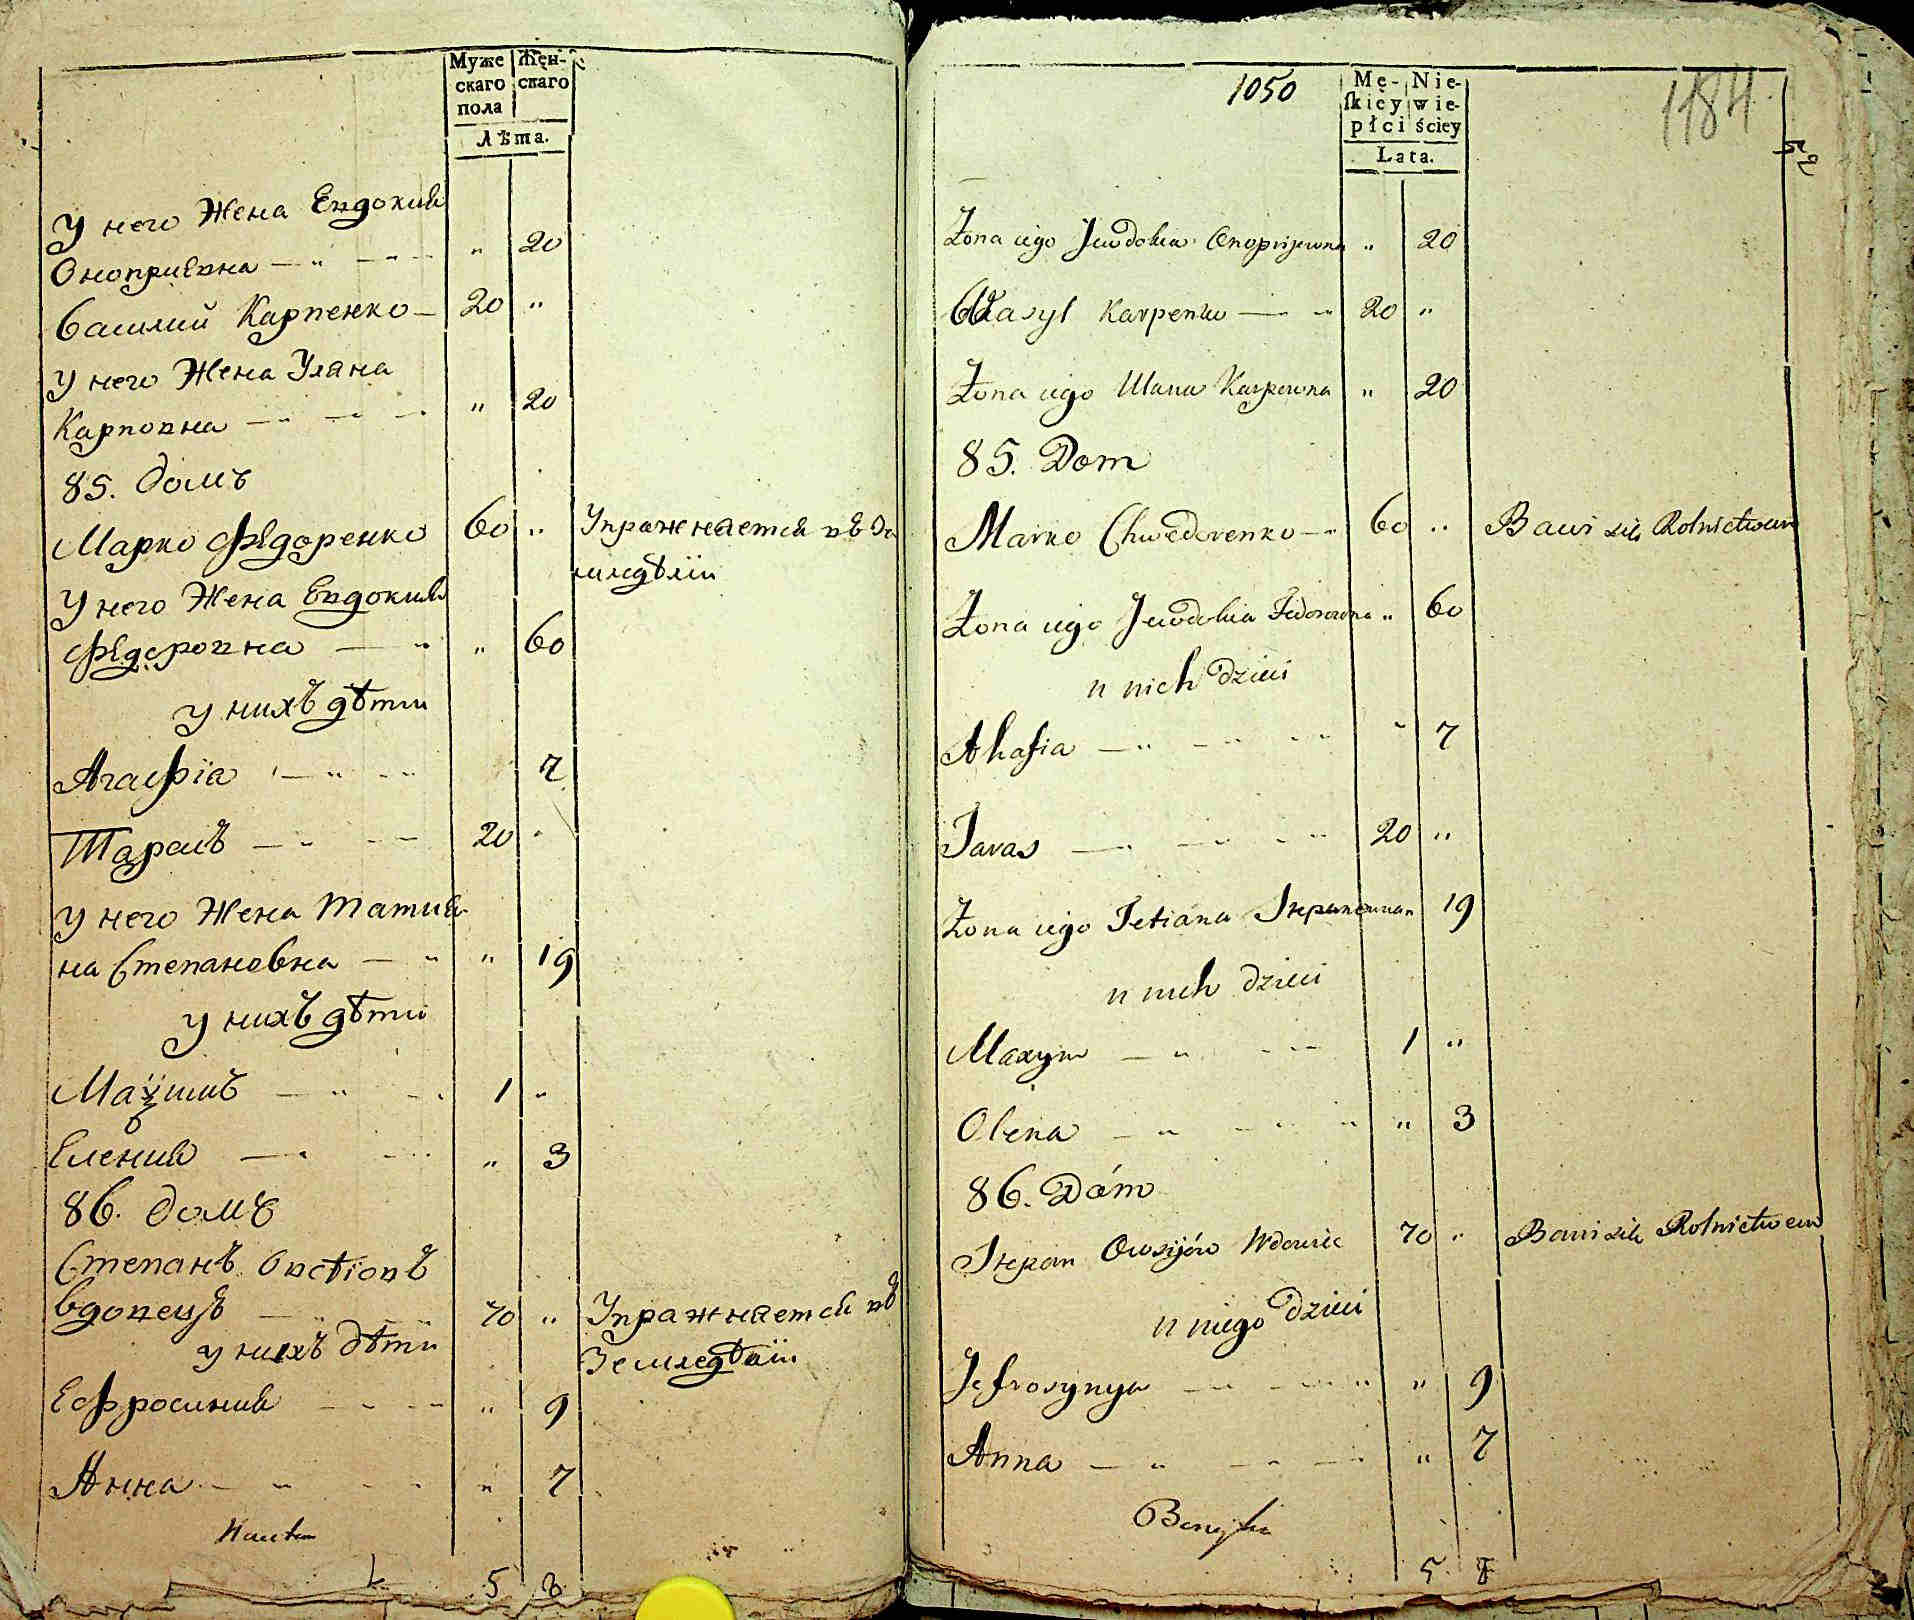 Муже
скаго
пола
Жен-
скаго
Лѣта.
У него Жена Евдокия
Оноприевна — " — " " 20
Василий Карпенко — 20 "
У него Жена Уляна
Карповна — " — " " 20
85. домъ
Марко Федоренко 60 " Упражняется въ зе
мледѣлїи
У него Жена Евдокия
Федоровна — " " 60
у нихъ дѣти
Агафїа — " 7
Тарасъ — " 20 "
У него Жена Татия
на Степановна — " " 19
у нихъ дѣти
Маѯимъ — " 1 "
Еления — " " 3
86. домъ
Степанъ Овсѣіовъ
вдовецъ — 70 " Упражняется въ
Земледѣлїи
у нихъ дѣти
Ефросиния — " " 9
Анна — " " 7
5 8
1050
Mę-
skiey
płci
Nie-
wie-
ściey
Lata.
1184
Żona iego Jewdokia Onopryiewna " 20
Wasyl Karpenko — " 20 "
Żona iego Ulana Karpowna " 20
85. Dom
Marko Chwedorenko — " 60 " Bawi się Rolnictwem
Żona iego Jewdokia Fedorowna " 60
u nich dzieci
Ahafia — " — " " 7
Taras — " 20 "
Żona iego Tetiana Stepanowna " 19
u nich dzieci
Maxym — " 1 "
Olena — " " 3
86. Dóm
Stepan Owsijów Wdowiec 70 " Bawi się Rolnictwem
u niego dzieci
Jefrosynya — " " 9
Anna — " " 7
5 8